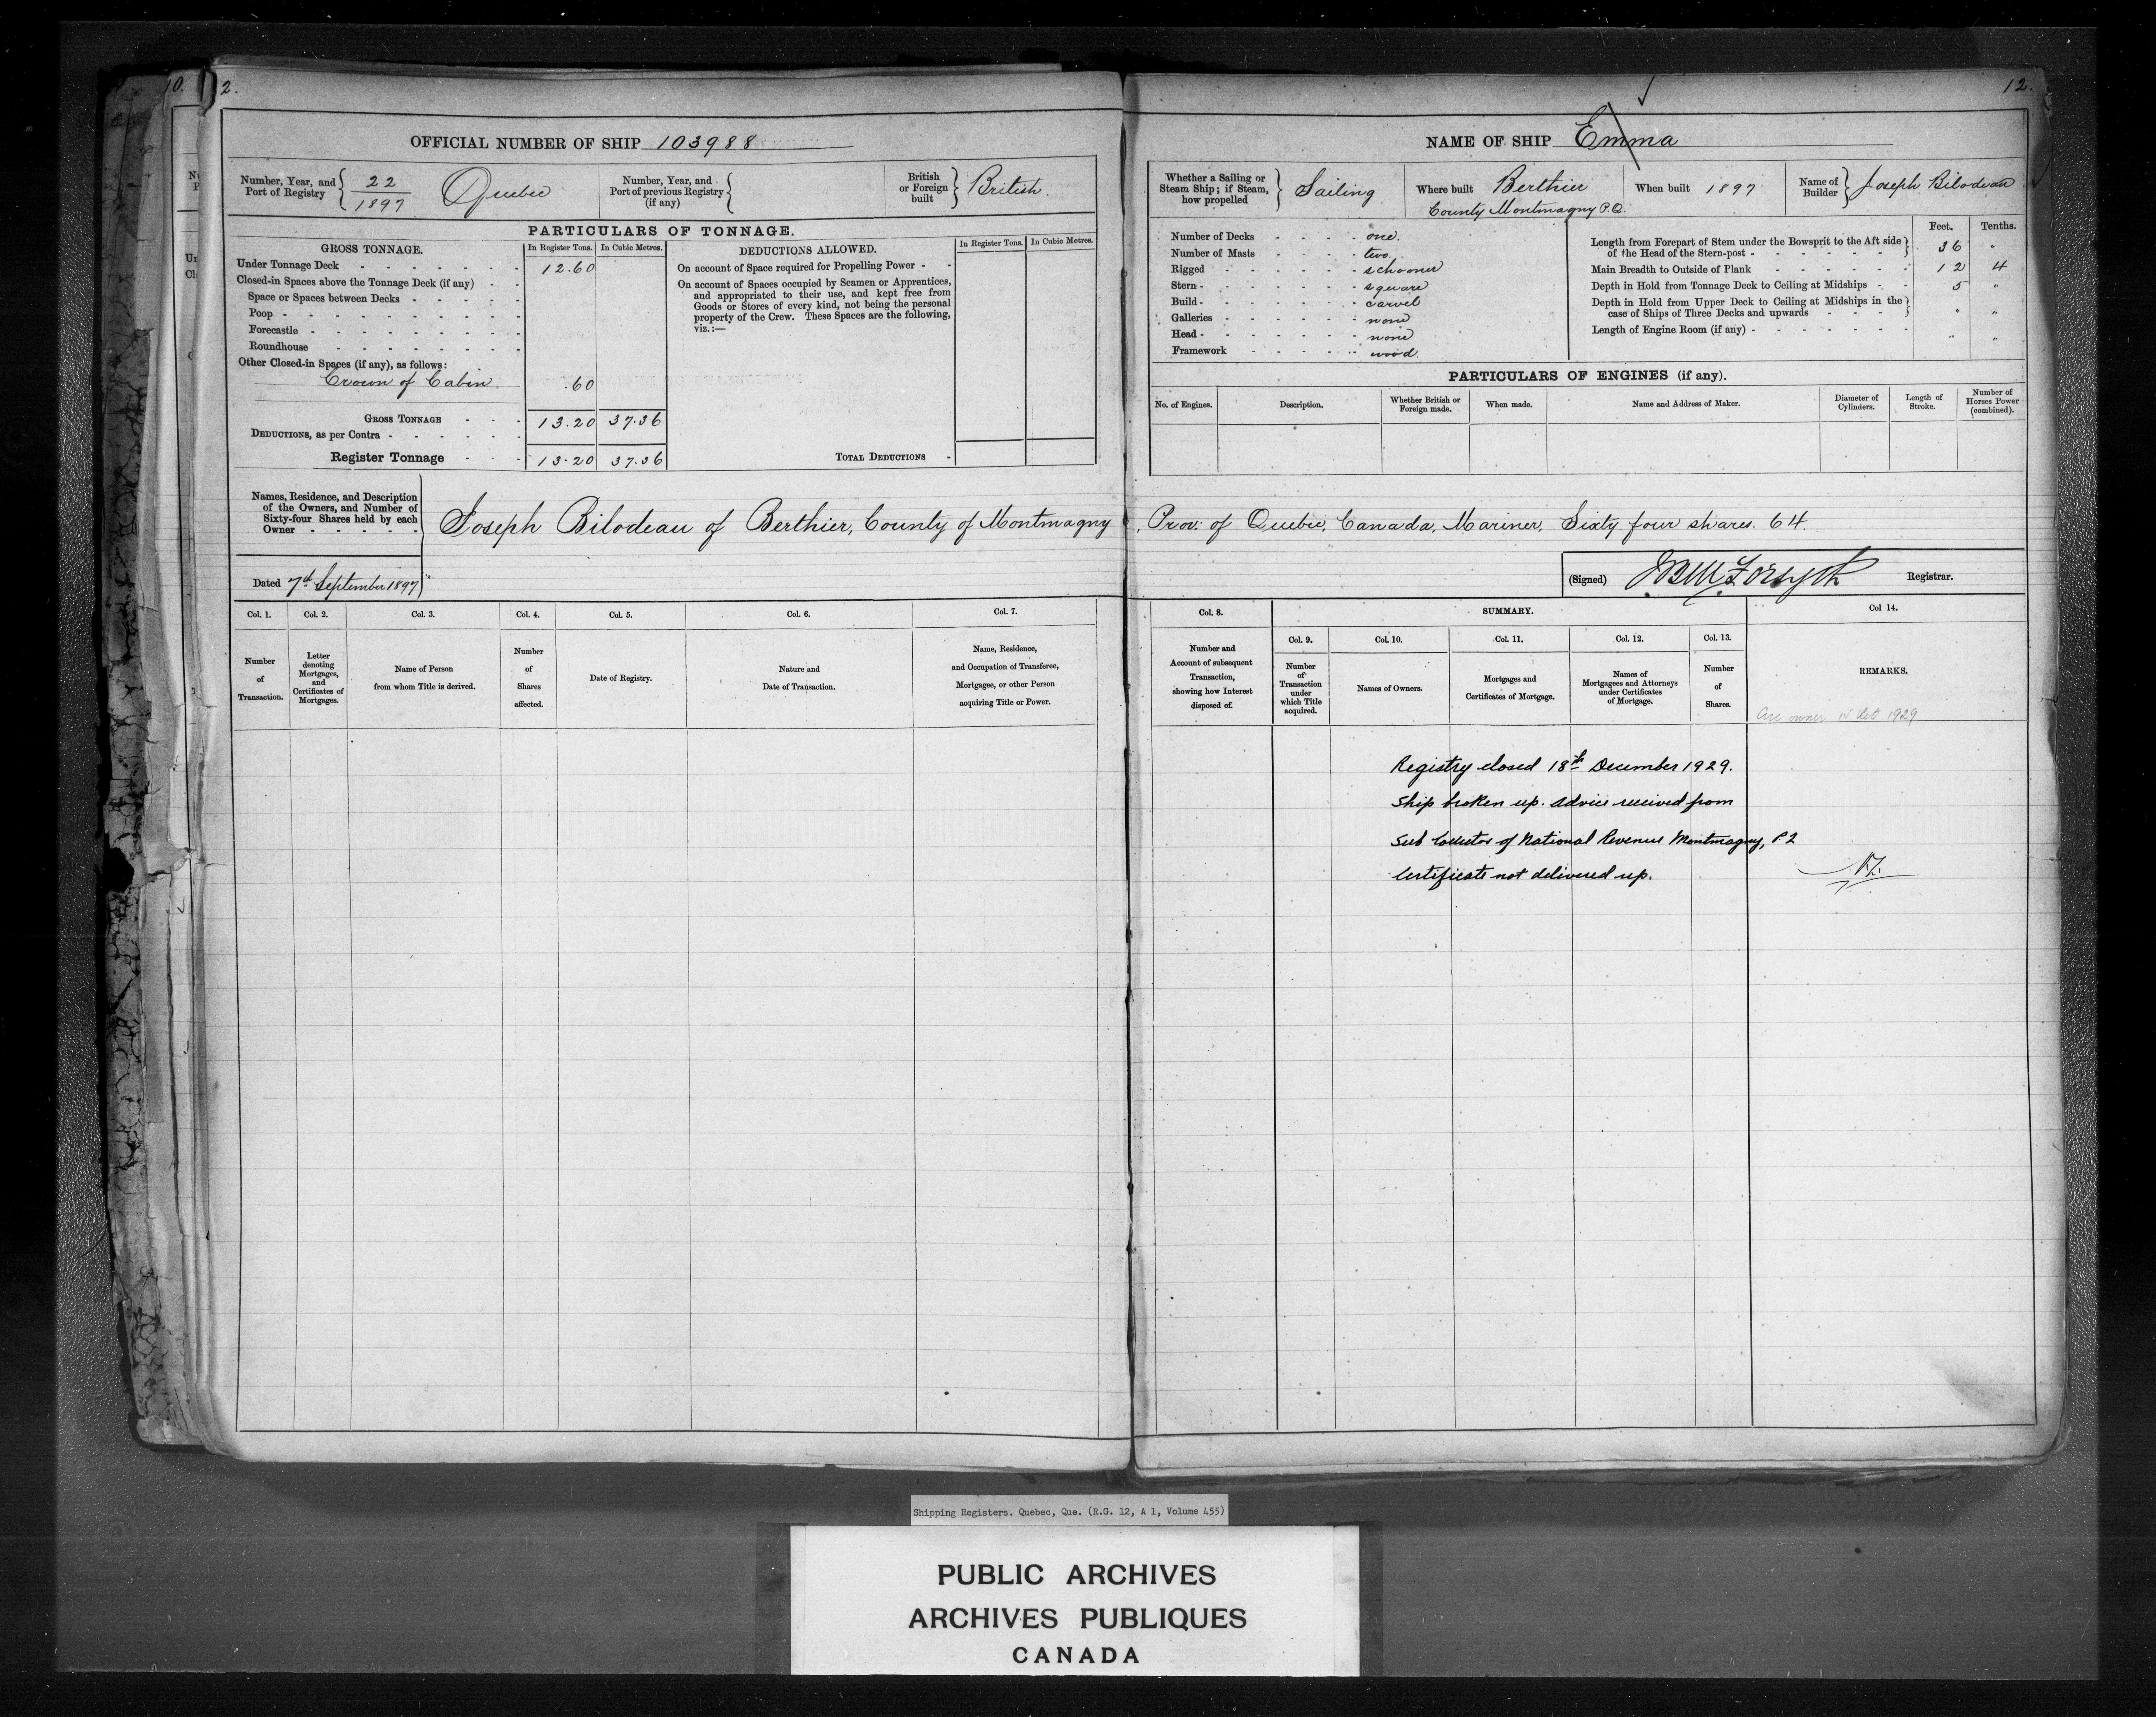 10.
2.
OFFICIAL NUMBER OF SHIP 103988
Number, Year, and Port of Registry { 22 / 1897 Quebec
Number, Year, and Port of previous Registry (if any) {
British or Foreign built } British.
PARTICULARS OF TONNAGE.
GROSS TONNAGE.
In Register Tons. In Cubic Metres.
DEDUCTIONS ALLOWED.
In Register Tons. In Cubic Metres.
Under Tonnage Deck - 12.60
Closed-in Spaces above the Tonnage Deck (if any) - -
Space or Spaces between Decks -
Poop -
Forecastle -
Roundhouse -
Other Closed-in Spaces (if any), as follows:
Crown of Cabin .60
GROSS TONNAGE - 13.20 37.36
DEDUCTIONS, as per Contra -
Register Tonnage - 13.20 37.36
On account of Space required for Propelling Power - -
On account of Spaces occupied by Seamen or Apprentices,
and appropriated to their use, and kept free from
Goods or Stores of every kind, not being the personal
property of the Crew. These Spaces are the following,
viz.:—
TOTAL DEDUCTIONS -
Names, Residence, and Description
of the Owners, and Number of
Sixty-four Shares held by each
Owner -
Joseph Bilodeau of Berthier, County of Montmagny
Dated 7th September 1897
Col. 1. Col. 2. Col. 3. Col. 4. Col. 5. Col. 6. Col. 7.
Number of Transaction.
Letter denoting Mortgages, and Certificates of Mortgages.
Name of Person from whom Title is derived.
Number of Shares affected.
Date of Registry.
Nature and Date of Transaction.
Name, Residence, and Occupation of Transferee, Mortgagee, or other Person acquiring Title or Power.
12.
NAME OF SHIP Emma
Whether a Sailing or Steam Ship; if Steam, how propelled } Sailing
Where built Berthier
County Montmagny P.Q.
When built 1897
Name of Builder } Joseph Bilodeau
Number of Decks - one.
Number of Masts - two.
Rigged - schooner
Stern - square
Build - carvel
Galleries - none
Head - none
Framework - wood.
Feet. Tenths.
Length from Forepart of Stem under the Bowsprit to the Aft side
of the Head of the Stern-post - 36 "
Main Breadth to Outside of Plank - 12 4
Depth in Hold from Tonnage Deck to Ceiling at Midships - 5 "
Depth in Hold from Upper Deck to Ceiling at Midships in the
case of Ships of Three Decks and upwards - " "
Length of Engine Room (if any) - " "
PARTICULARS OF ENGINES (if any).
No. of Engines.
Description.
Whether British or Foreign made.
When made.
Name and Address of Maker.
Diameter of Cylinders.
Length of Stroke.
Number of Horses Power (combined).
, Prov: of Quebec, Canada, Mariner, Sixty four shares. 64.
(Signed) JBM Forsyth Registrar.
Col. 8. SUMMARY. Col 14.
Col. 9. Col. 10. Col. 11. Col. 12. Col. 13.
Number and Account of subsequent Transaction, showing how Interest disposed of.
Number of Transaction under which Title acquired.
Names of Owners.
Mortgages and Certificates of Mortgage.
Names of Mortgagees and Attorneys under Certificates of Mortgage.
Number of Shares.
REMARKS.
owner 1929
Registry closed 18th December 1929.
Ship broken up. Advice received from
Sub Collector of National Revenue Montmagny, P.Q
Certificate not delivered up.
Shipping Registers. Quebec, Que. (R.G. 12, A 1, Volume 455)
PUBLIC ARCHIVES
ARCHIVES PUBLIQUES
CANADA